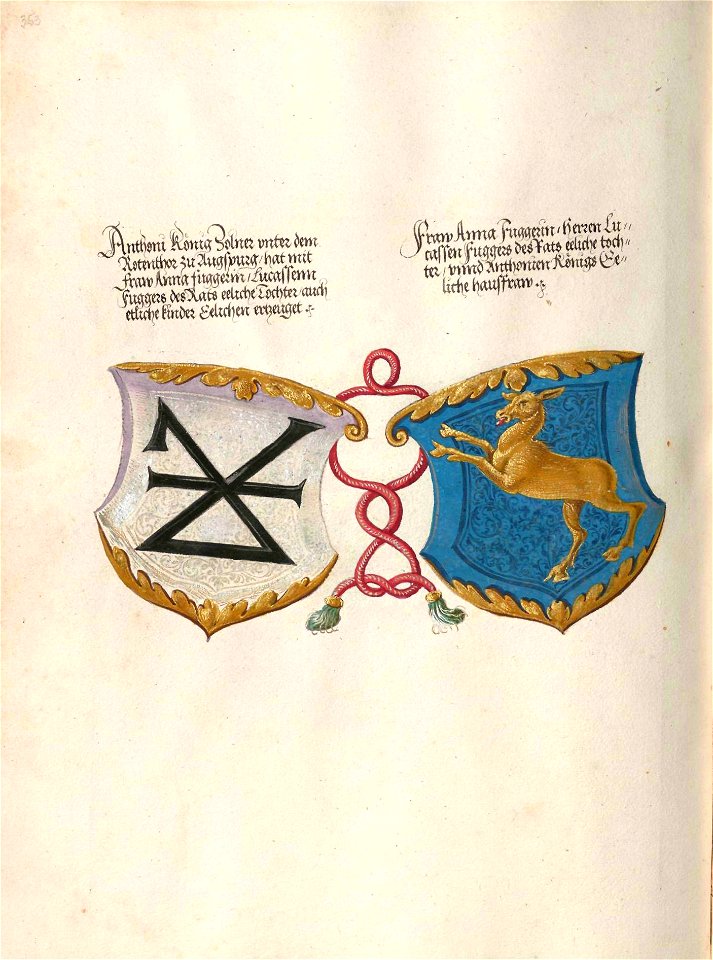 353
Anthoni König Zolner vnter dem
Rotenthor zu Augspurg / hat mit
Fraw Anna Fuggerin / Lucassenn
Fuggers des Rats eeliche Tochter / auch
etliche kinder Eelichen ertzeuget.
Fraw Anna Fuggerin / Herren Lu=
cassen Fuggers des Rats eeliche toch=
ter / vnnd Anthonien Königs Ee=
liche hausfraw.